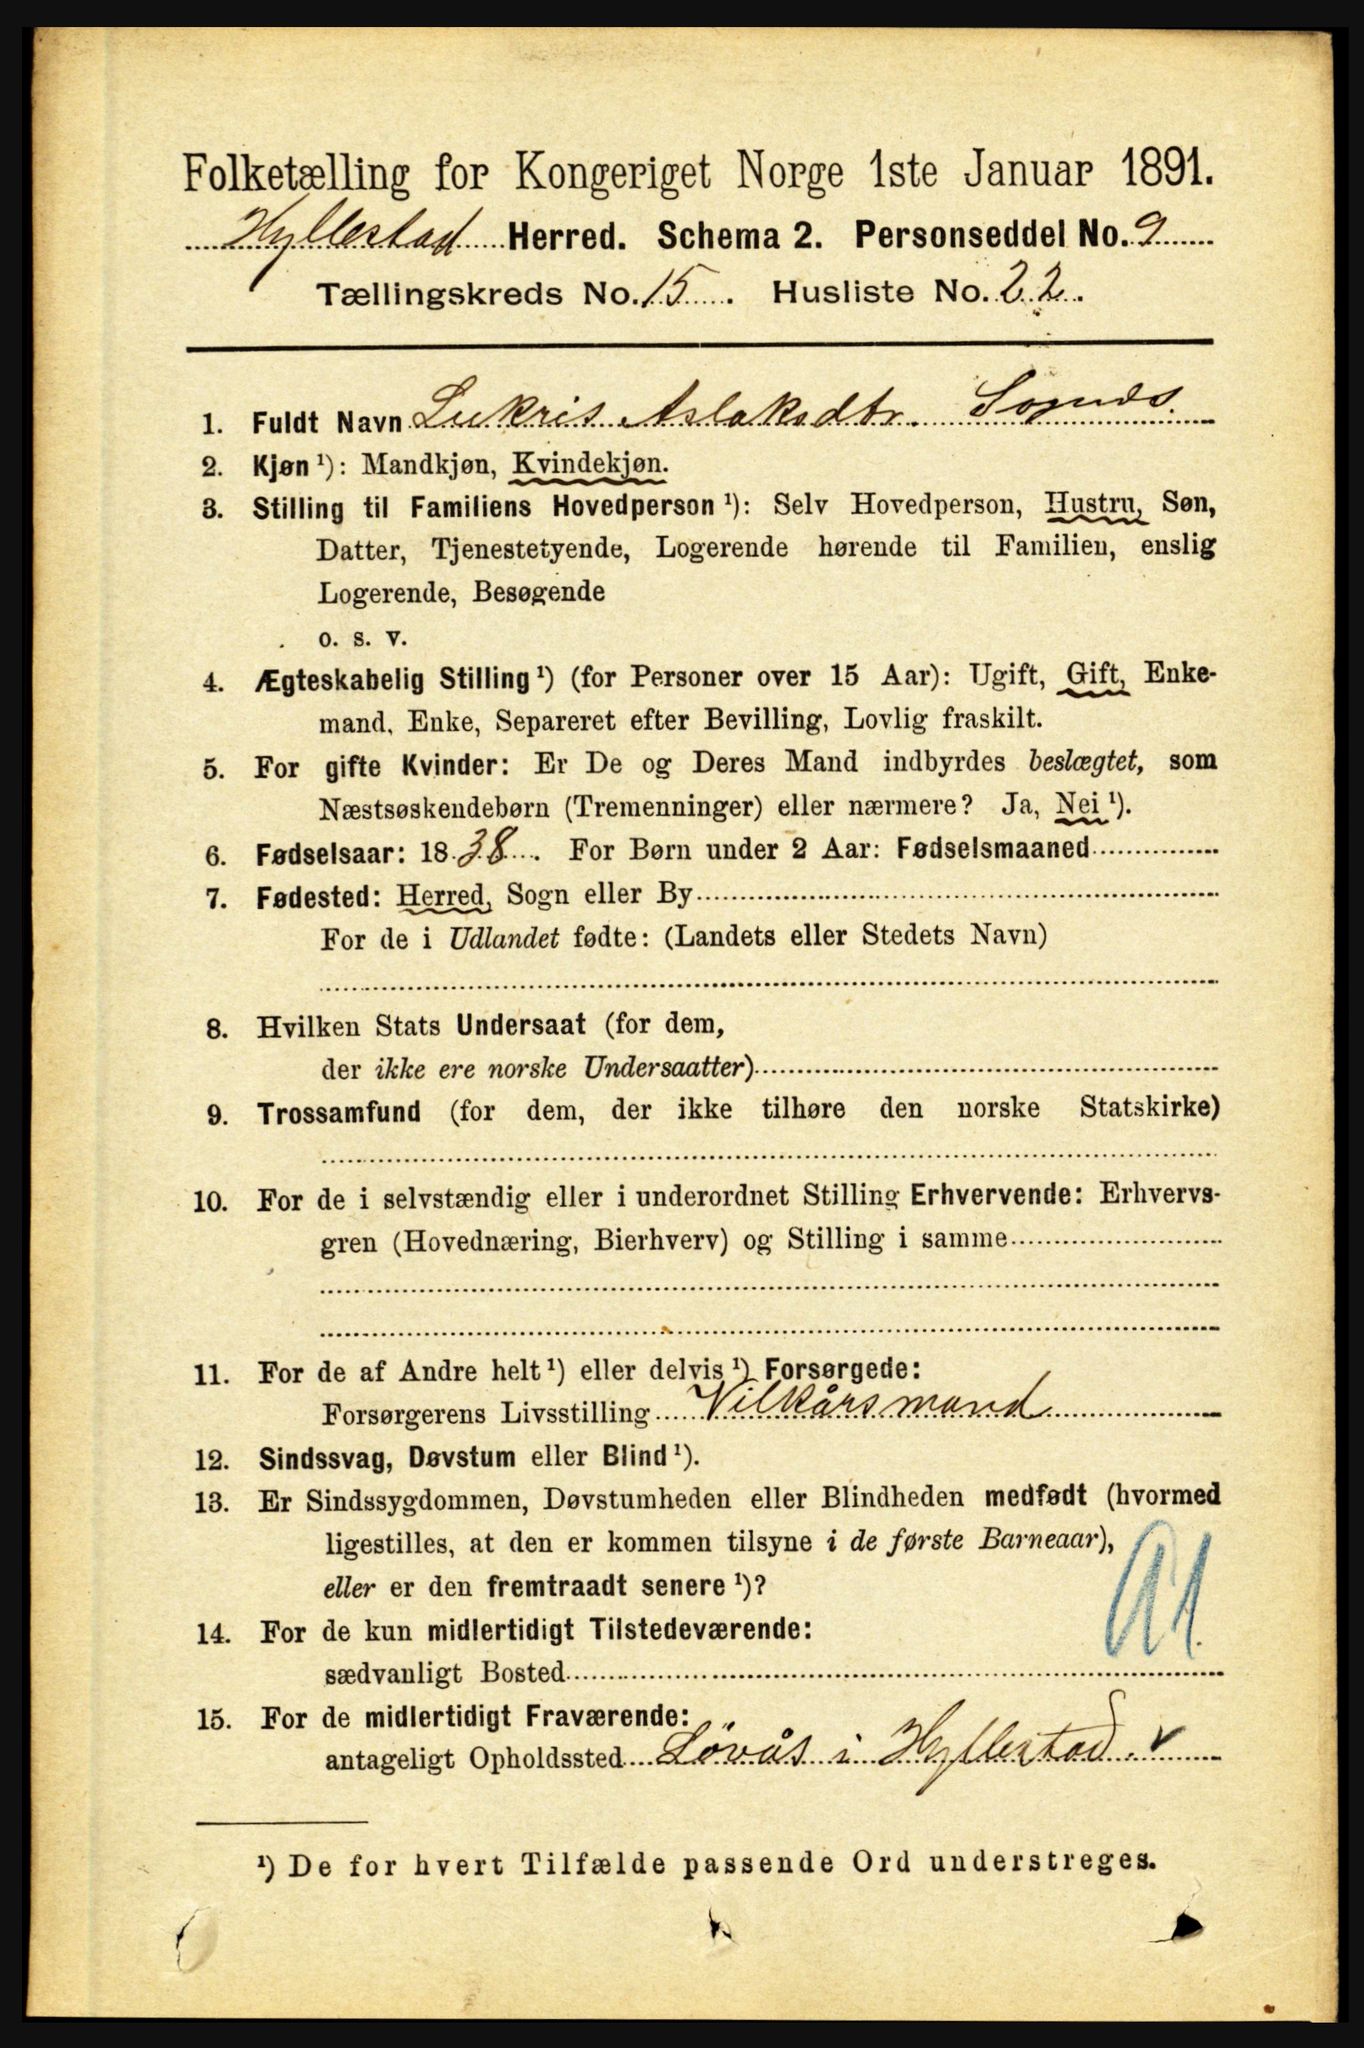 Folketælling for Kongeriget Norge 1ste Januar 1891.
Hyllestad Herred. Schema 2. Personseddel No. 9
Tællingskreds No. 15. Husliste No. 22.
1. Fuldt Navn Lukris Aslaksdtr.
2. Kjøn ¹): Mandkjøn, Kvindekjøn.
3. Stilling til Familiens Hovedperson ¹): Selv Hovedperson, Hustru, Søn,
Datter, Tjenestetyende, Logerende hørende til Familien, enslig
Logerende, Besøgende
o. s. v.
4. Ægteskabelig Stilling ¹) (for Personer over 15 Aar): Ugift, Gift, Enke-
mand, Enke, Separeret efter Bevilling, Lovlig fraskilt.
5. For gifte Kvinder: Er De og Deres Mand indbyrdes beslægtet, som
Næstsøskendebørn (Tremenninger) eller nærmere? Ja, Nei ¹).
6. Fødselsaar: 1838. For Børn under 2 Aar: Fødselsmaaned
7. Fødested: Herred, Sogn eller By
For de i Udlandet fødte: (Landets eller Stedets Navn)
8. Hvilken Stats Undersaat (for dem,
der ikke ere norske Undersaatter)
9. Trossamfund (for dem, der ikke tilhøre den norske Statskirke)
10. For de i selvstændig eller i underordnet Stilling Erhvervende: Erhvervs-
gren (Hovednæring, Bierhverv) og Stilling i samme
11. For de af Andre helt ¹) eller delvis ¹) Forsørgede:
Forsørgerens Livsstilling Vilkårsmand
12. Sindssvag, Døvstum eller Blind ¹).
13. Er Sindssygdommen, Døvstumheden eller Blindheden medfødt (hvormed
ligestilles, at den er kommen tilsyne i de første Barneaar),
eller er den fremtraadt senere ¹)?
14. For de kun midlertidigt Tilstedeværende:
sædvanligt Bosted
15. For de midlertidigt Fraværende:
antageligt Opholdssted Løvås i Hyllestad.
¹) De for hvert Tilfælde passende Ord understreges.